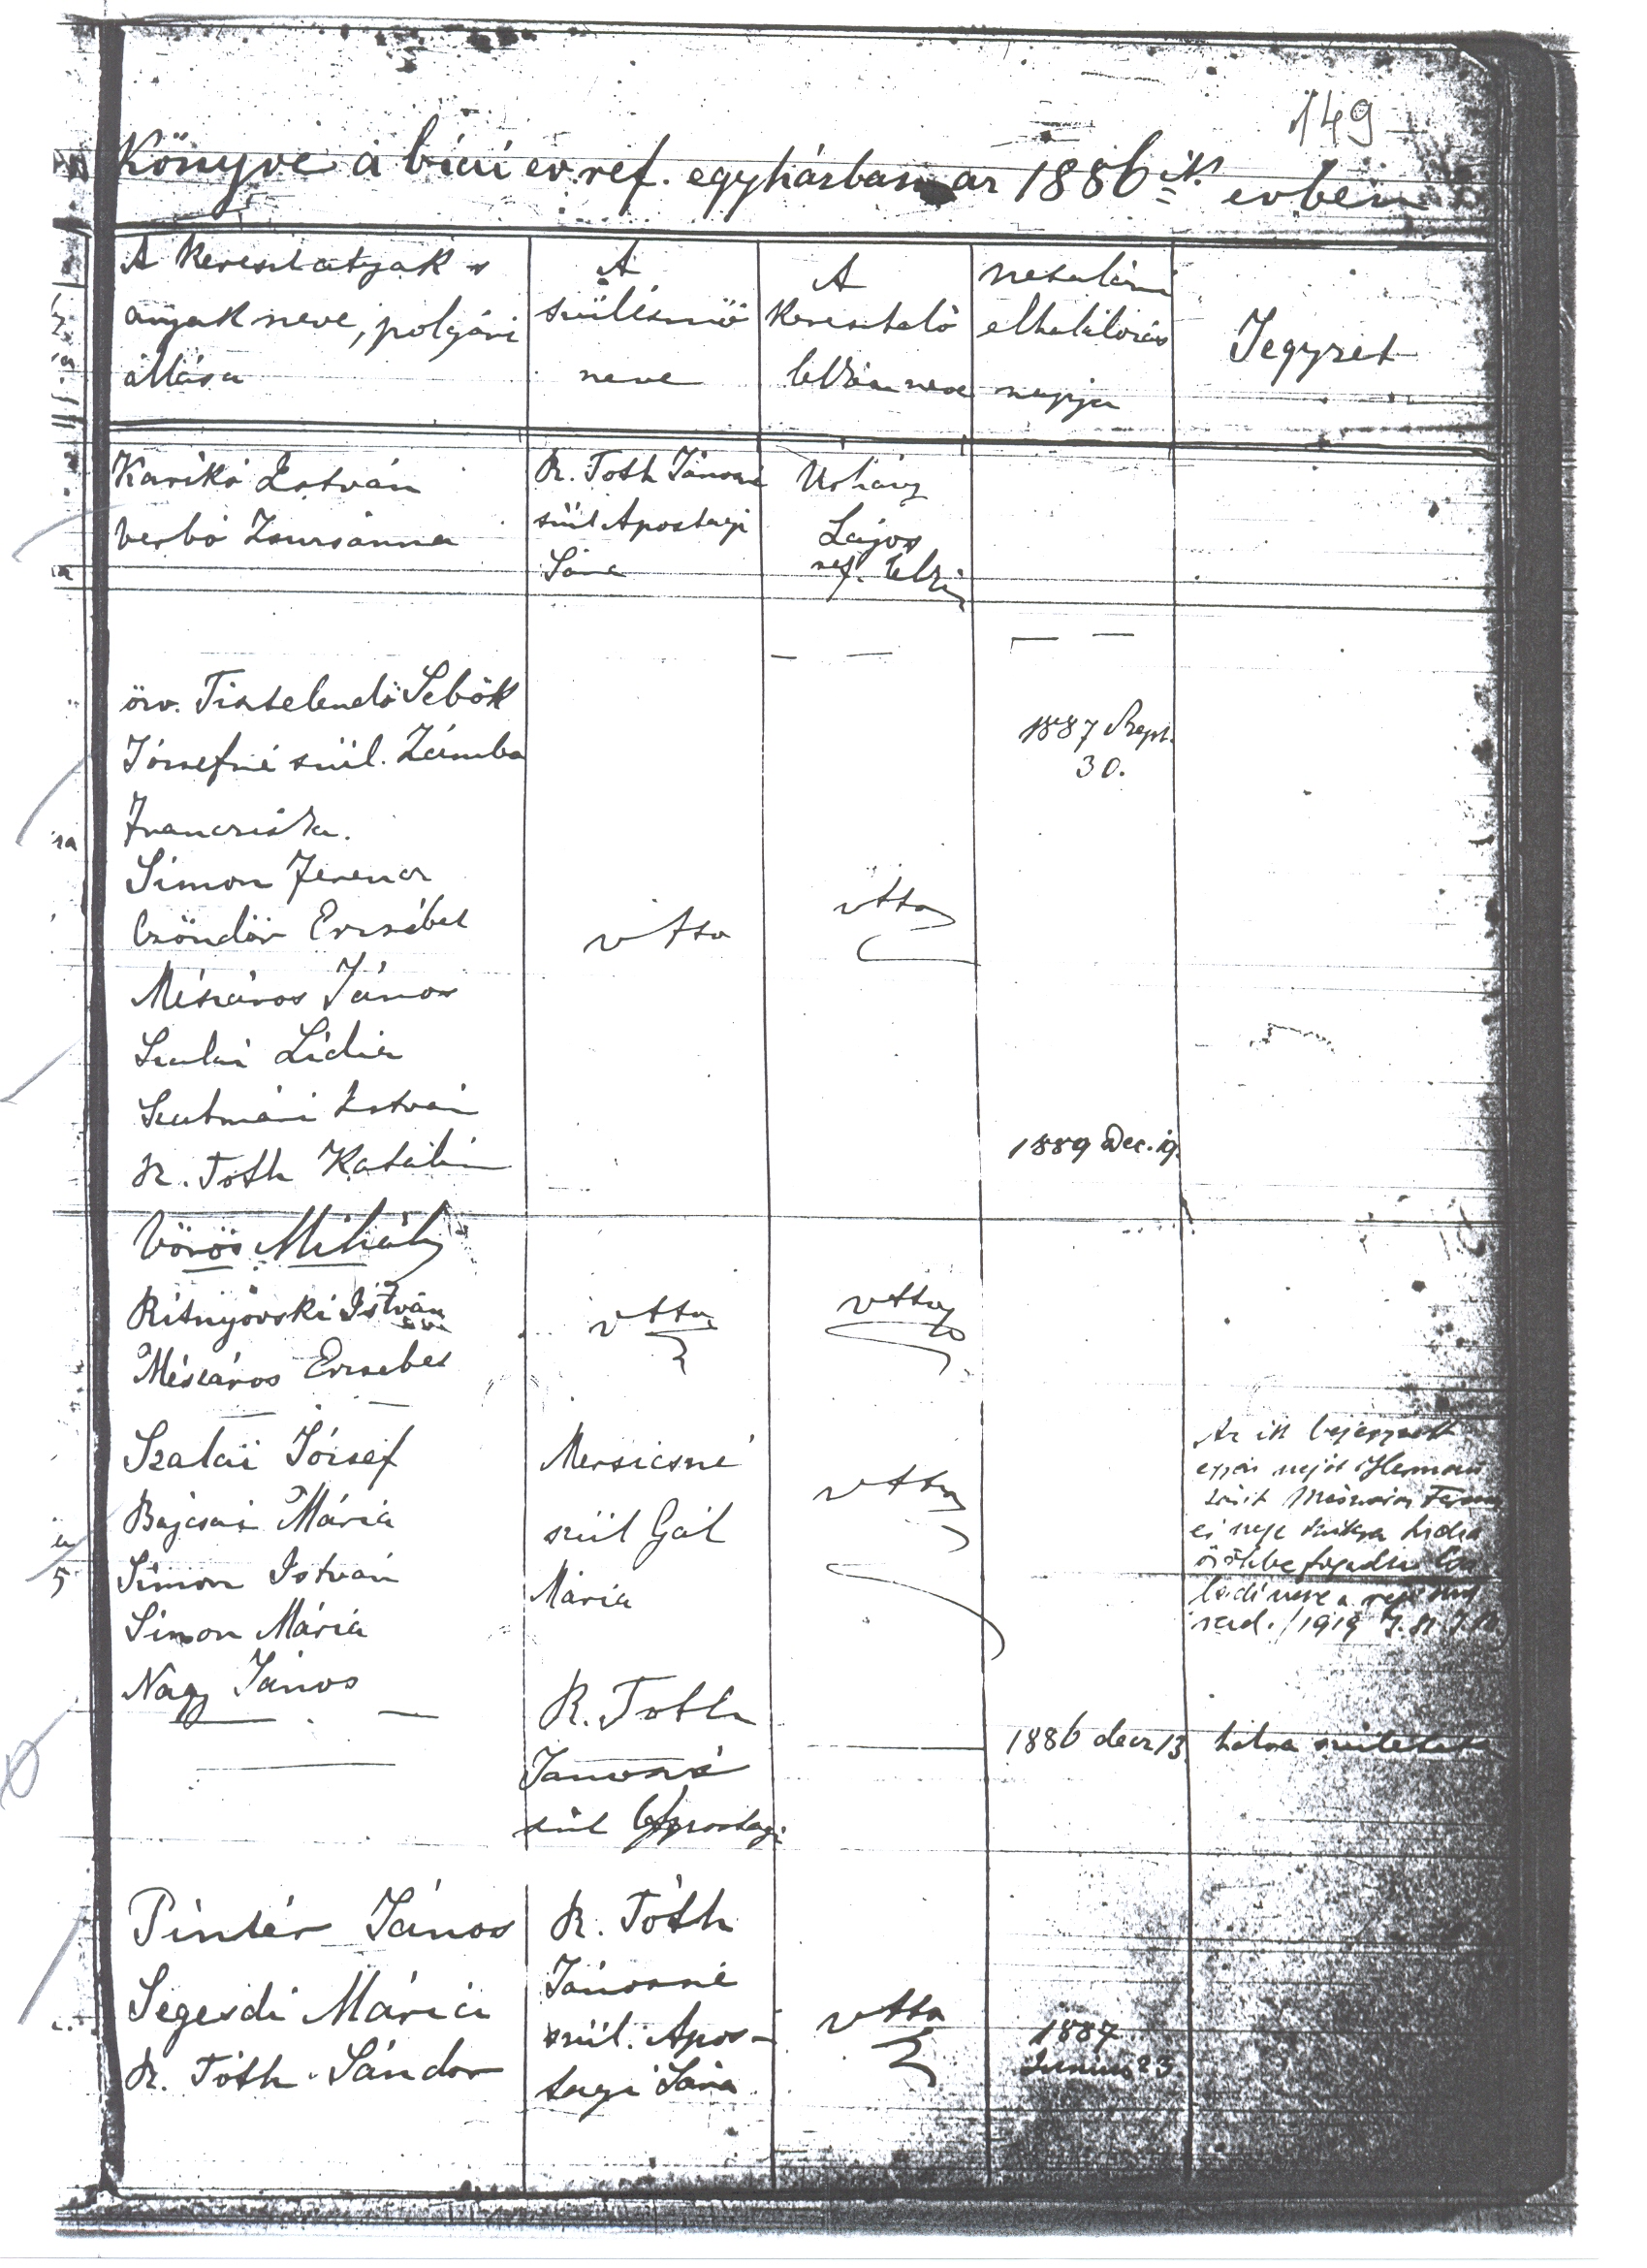 149
Könyve a bicai ev. ref. egyházban az 1886 ik évben
A keresztatyák s
anyák neve, polgári
állása
A
szülésznő
neve
A
keresztelő
lelkész neve
netaláni
elhalálozás
napja
Jegyzet
Karikó István
Verbó Zsuzsánna
R. Toth Jánosné
szül Apostagi
Sára
Urházy
Lajos
ref. lelkész
özv. Tisztelendő Sebők
Józsefné szül. Zámbo
Francziska.
Simon Ferencz
Czöndör Erzsébet
Mészáros János
Szalai Lídia
Szatmári István
R. Toth Katalin
vtta
vtta
1887 Sept.
30.
1889 Dec. 19.
Vörös Mihály
Ritnyovski István
Mészáros Erzsebet
vtta
vtta
Szalai József
Bajcsai Mária
Simon István
Simon Mária
Nagy János
Mersicsné
szül Gál
Mária
vtta
Az ik bejegyzett
Mészáros
és neje Lidia
örökbe fogadta
1919
R. Toth
Janosné
szül Apostagi
1886 decz 13.
halva született
Pintér János
Segesdi Mária
R. Tóth Sándor
R. Tóth
Jánosné
szül. Apos-
tagi Sára
vtta
1887
Junius 23.